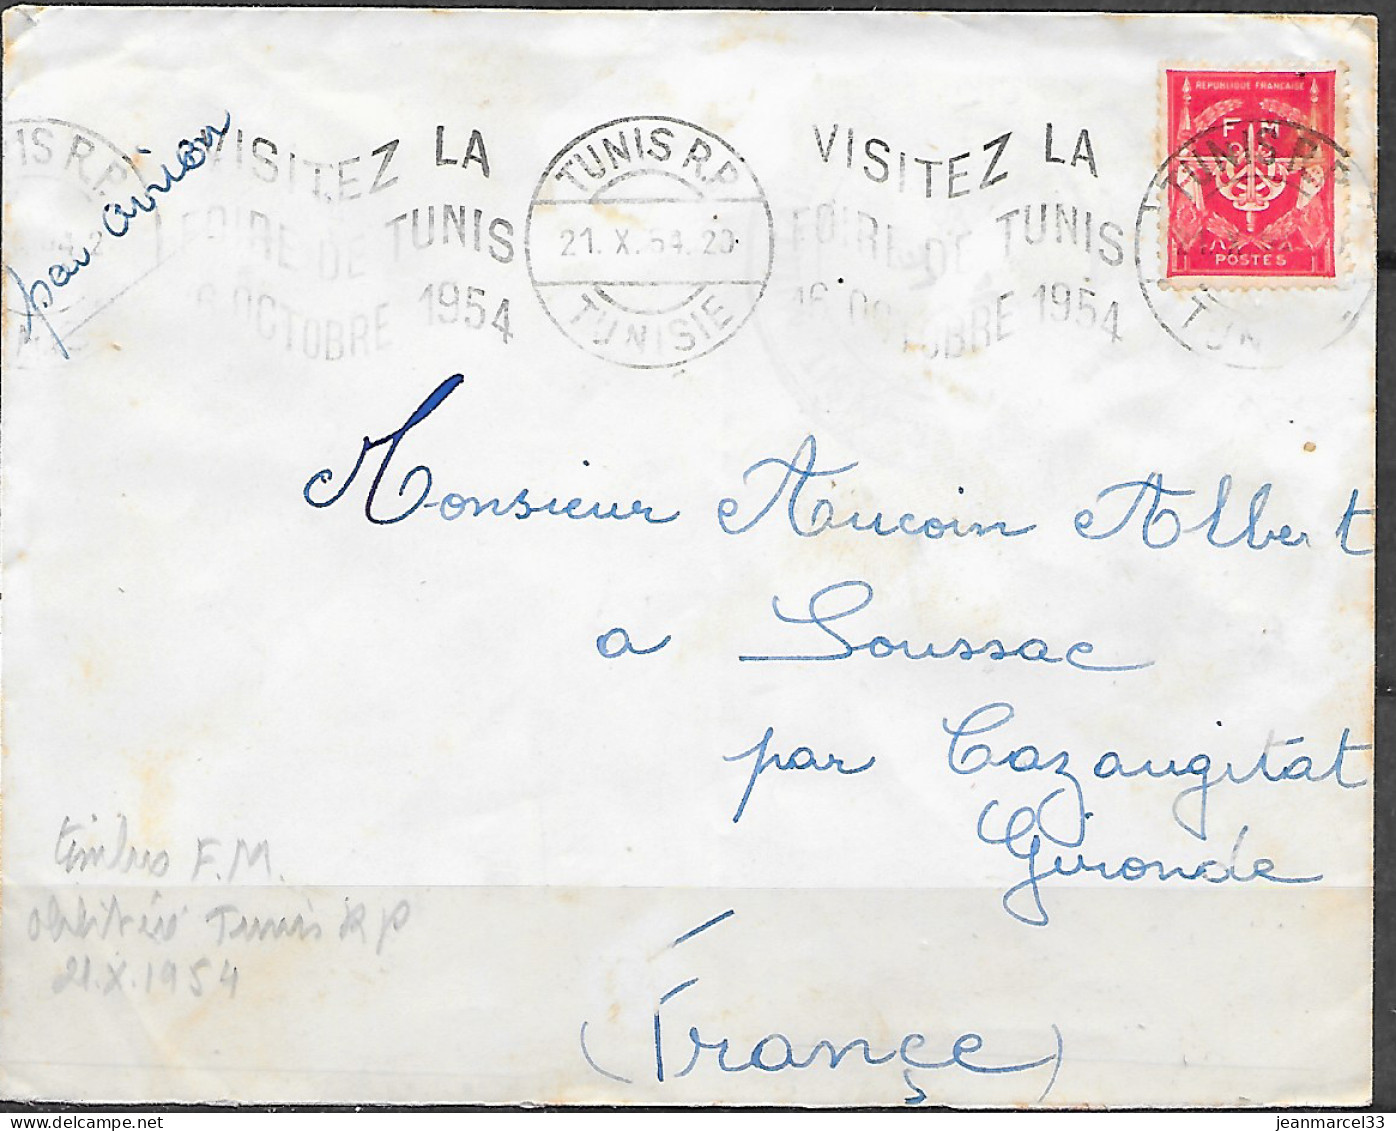 par avion
TUNIS R.P.
VISITEZ LA
FOIRE DE TUNIS
16 OCTOBRE 1954
TUNIS R.P.
21. X. 54. 20
TUNISIE
VISITEZ LA
FOIRE DE TUNIS
16 OCTOBRE 1954
REPUBLIQUE FRANÇAISE
F M
POSTES
TUNIS R.P.
Monsieur Aucoin Albert
a Soussac
par Cazaugitat
Gironde
(Françe)
timbre F.M.
oblitéré Tunis RP
21.X.1954
jeanmarcel33